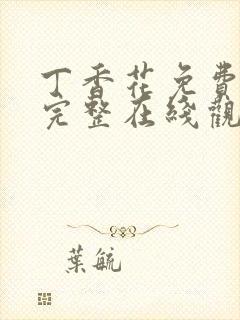 丁香花免費
完整在綫觀
葉毓